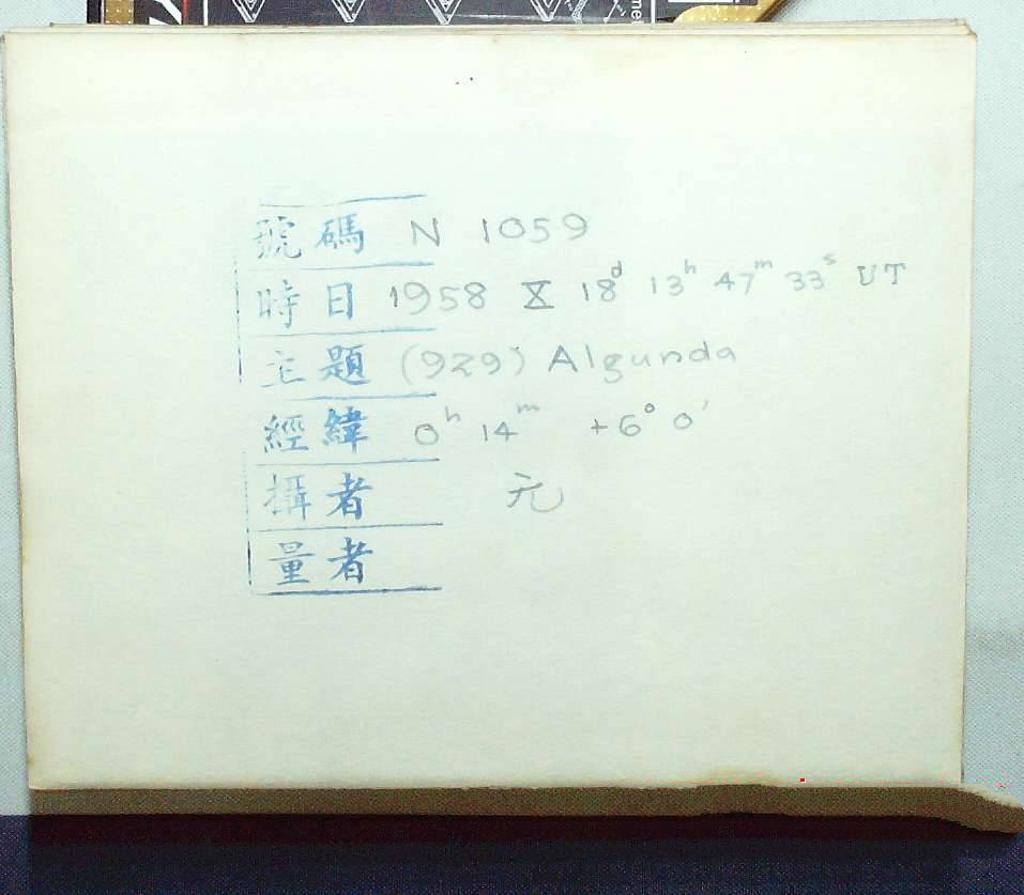 號碼 N 1059
時日 1958 X 18ᵈ 13ʰ 47ᵐ 33ˢ UT
主題 (929) Algunda
經緯 0ʰ 14ᵐ +6° 0′
攝者 元
量者